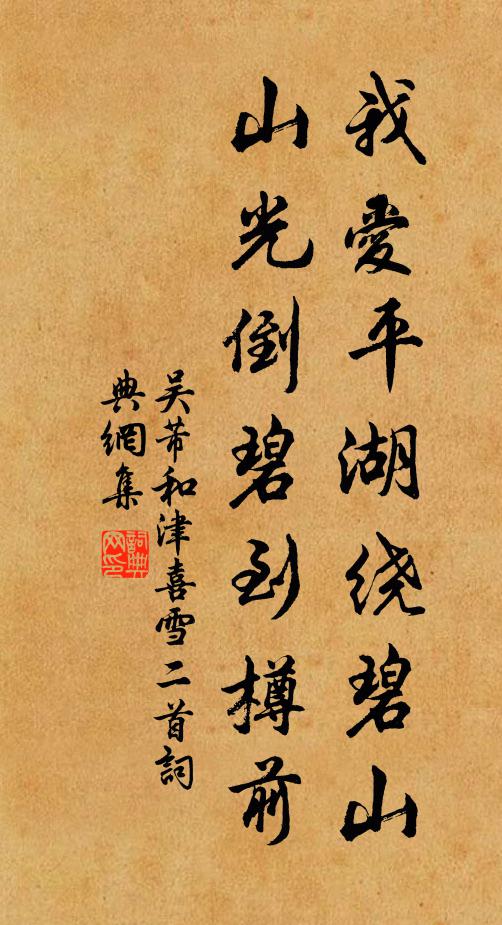 我愛平湖绕碧山
山光倒碧到樽前
吴芾和津喜雪二首詞
典網集
詞典网印